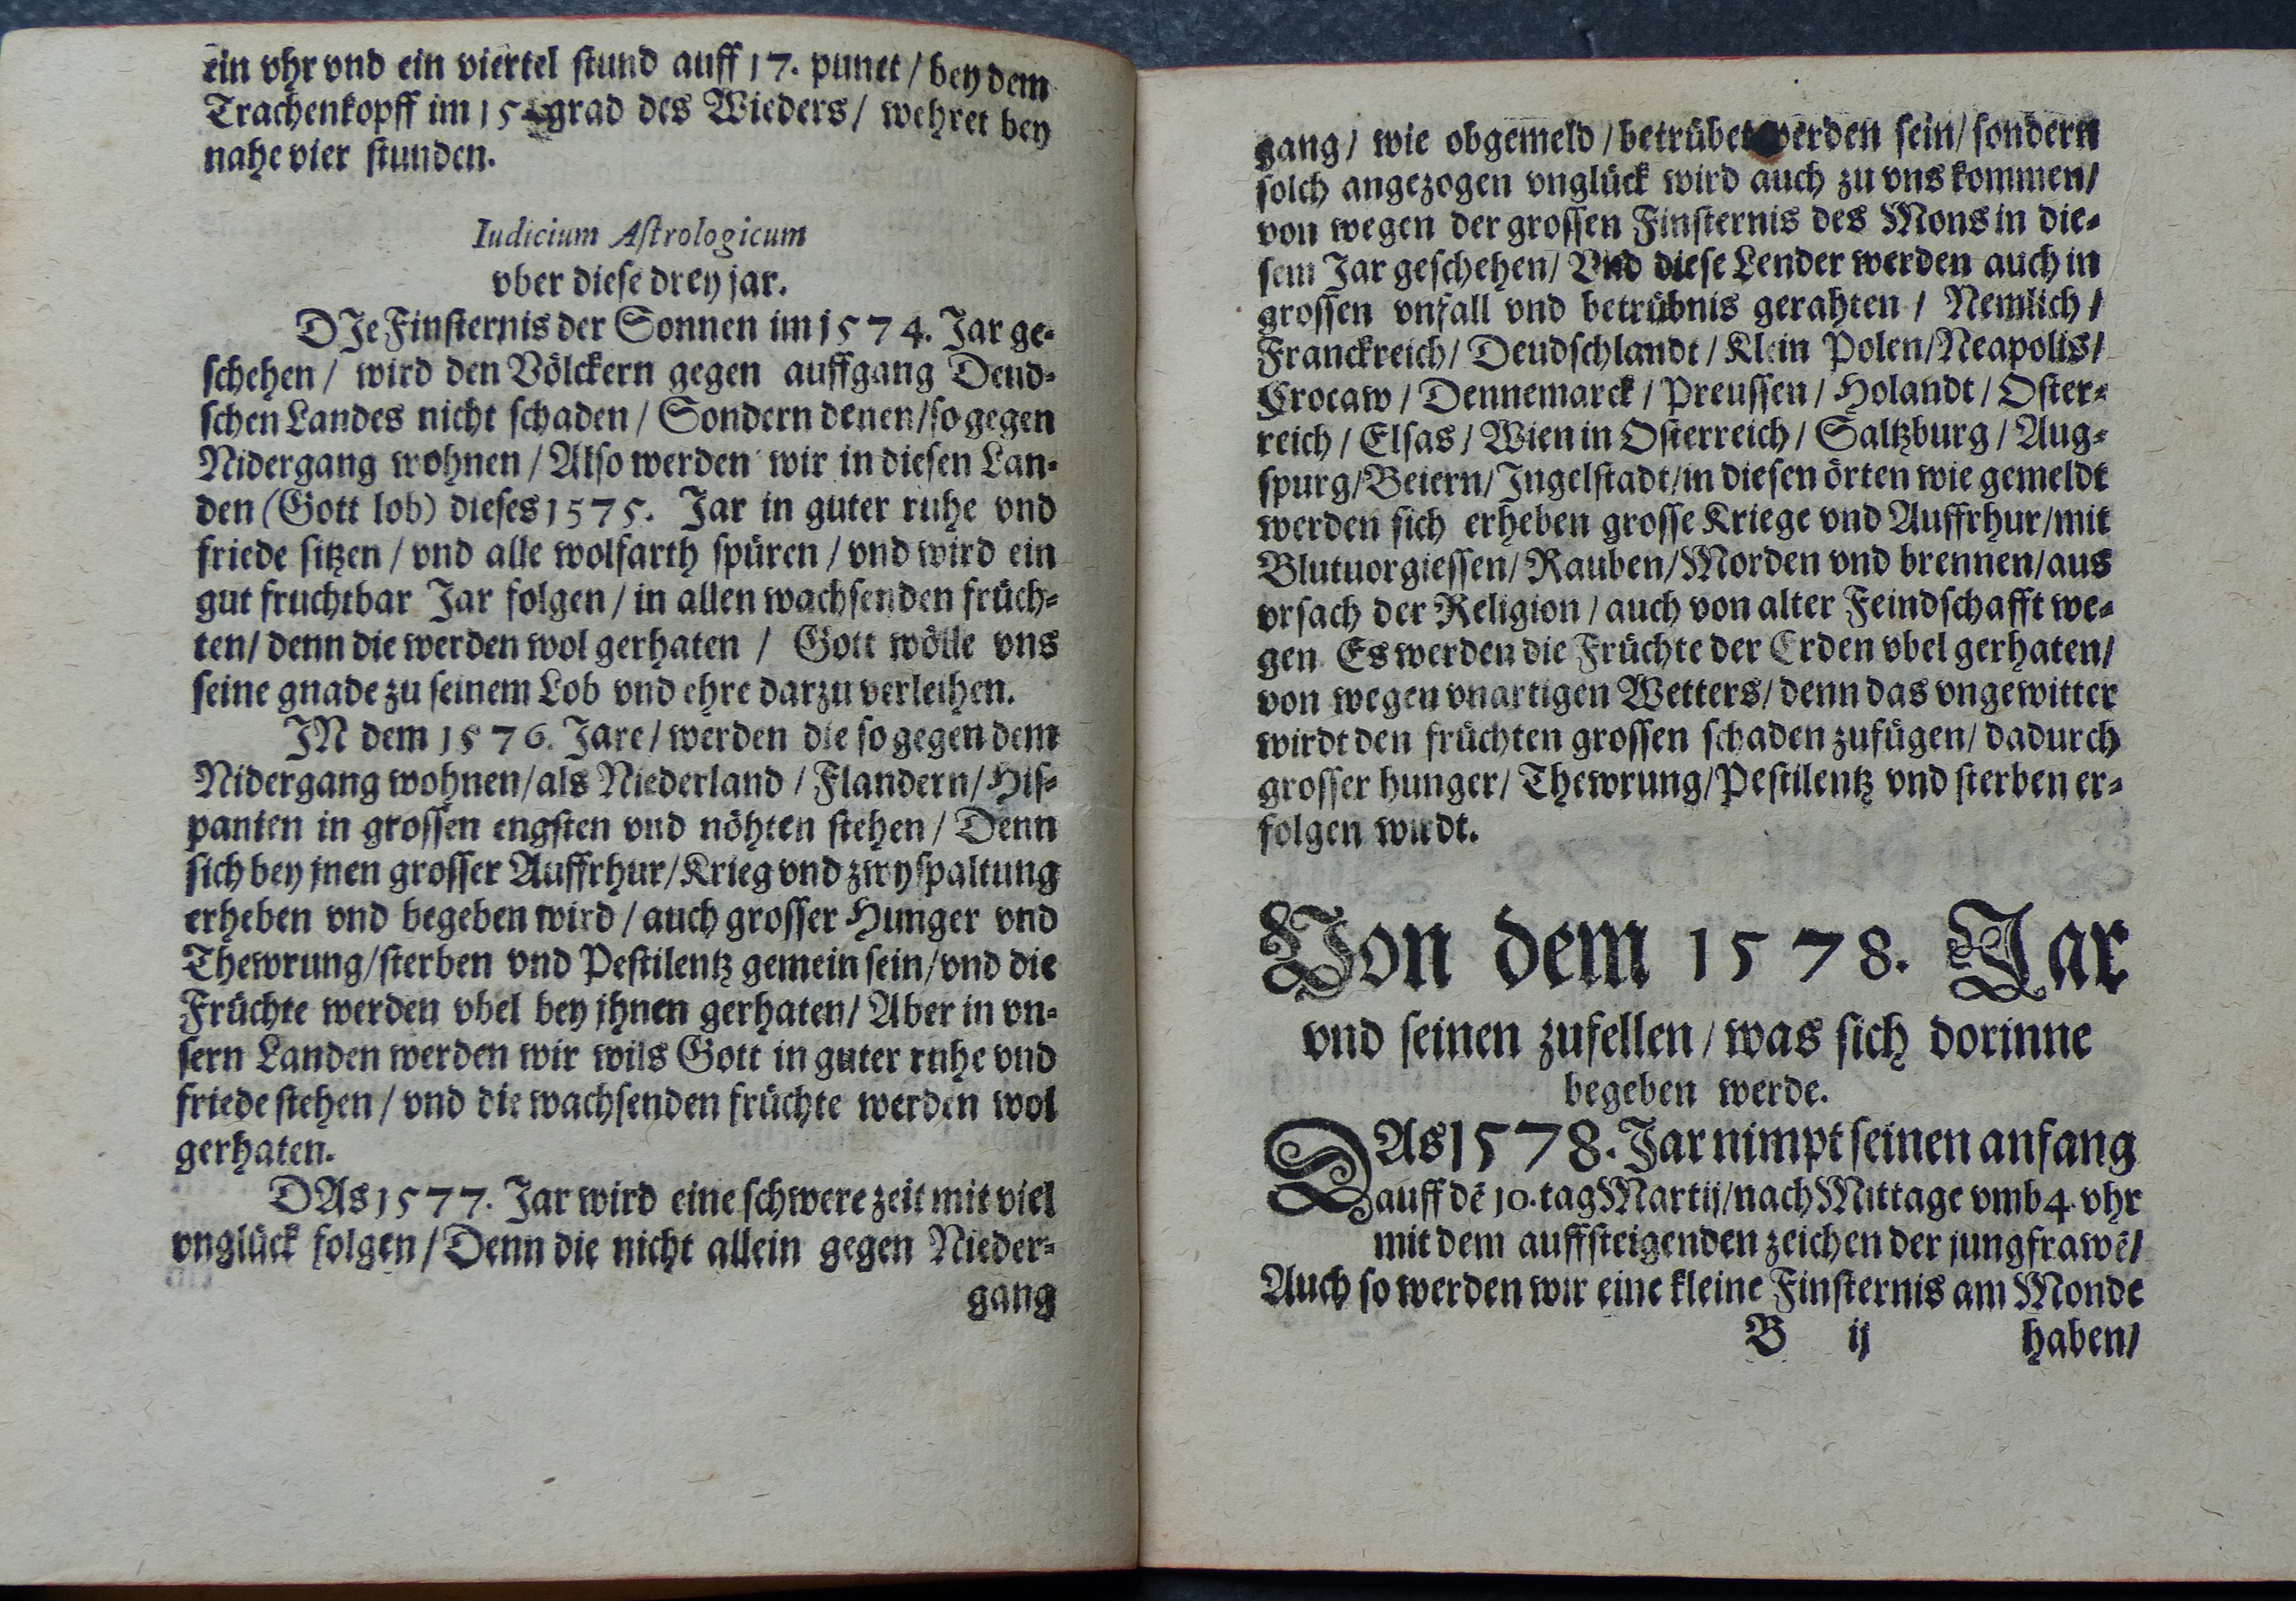 ein vhr vnd ein viertel stund auff 17. punct / bey dem
Trachenkopff im 15 grad des Wieders / wehret bey
nahe vier stunden.
Iudicium Astrologicum
vber diese drey jar.
DIe Finsternis der Sonnen im 1574. Jar ge-
schehen / wird den Völckern gegen auffgang Deud-
schen Landes nicht schaden / Sondern denen / so gegen
Nidergang wohnen / Also werden wir in diesen Lan-
den (Gott lob) dieses 1575. Jar in guter ruhe vnd
friede sitzen / vnd alle wolfarth spüren / vnd wird ein
gut fruchtbar Jar folgen / in allen wachsenden früch-
ten / denn die werden wol gerhaten / Gott wölle vns
seine gnade zu seinem Lob vnd ehre darzu verleihen.
IN dem 1576. Jare / werden die so gegen dem
Nidergang wohnen / als Niederland / Flandern / His-
panien in grossen engsten vnd nöhten stehen / Denn
sich bey jnen grosser Auffrhur / Krieg vnd zwyspaltung
erheben vnd begeben wird / auch grosser Hunger vnd
Thewrung / sterben vnd Pestilentz gemein sein / vnd die
Früchte werden vbel bey jhnen gerhaten / Aber in vn-
sern Landen werden wir wils Gott in guter ruhe vnd
friede stehen / vnd die wachsenden früchte werden wol
gerhaten.
DAs 1577. Jar wird eine schwere zeit mit viel
vnglück folgen / Denn die nicht allein gegen Nieder-
gang
gang / wie obgemeld / betrübet werden sein / sondern
solch angezogen vnglück wird auch zu vns kommen /
von wegen der grossen Finsternis des Mons in die-
sem Jar geschehen / Vnd diese Lender werden auch in
grossen vnfall vnd betrübnis gerahten / Nemlich /
Franckreich / Deudschlandt / Klein Polen / Neapolis /
Crocaw / Dennemarck / Preussen / Holandt / Oster-
reich / Elsas / Wien in Osterreich / Saltzburg / Aug-
spurg / Beiern / Ingelstadt / in diesen örten wie gemeldt
werden sich erheben grosse Kriege vnd Auffrhur / mit
Blutuorgiessen / Rauben / Morden vnd brennen / aus
vrsach der Religion / auch von alter Feindschafft we-
gen Es werden die Früchte der Erden vbel gerhaten /
von wegen vnartigen Wetters / denn das vngewitter
wirdt den früchten grossen schaden zufügen / dadurch
grosser hunger / Thewrung / Pestilentz vnd sterben er-
folgen wirdt.
Von dem 1578. Jar
vnd seinen zufellen / was sich dorinne
begeben werde.
DAs 1578. Jar nimpt seinen anfang
auff dē 10. tag Martij / nach Mittage vmb 4. vhr
mit dem auffsteigenden zeichen der jungfrawē /
Auch so werden wir eine kleine Finsternis am Monde
B ij haben /